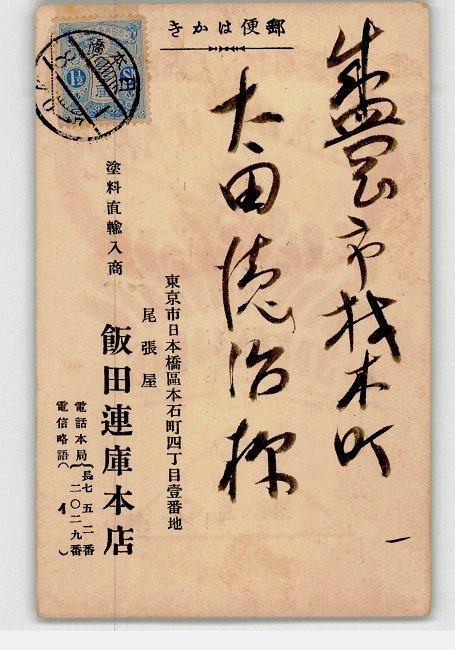 郵便はかき
盛岡市材木町
大田徳治様
塗料直輸入商
東京市日本橋區本石町四丁目壹番地
尾張屋
飯田連庫本店
電話本局(長七五二番
二〇二九番
電信略語(イ)
日本橋
1½